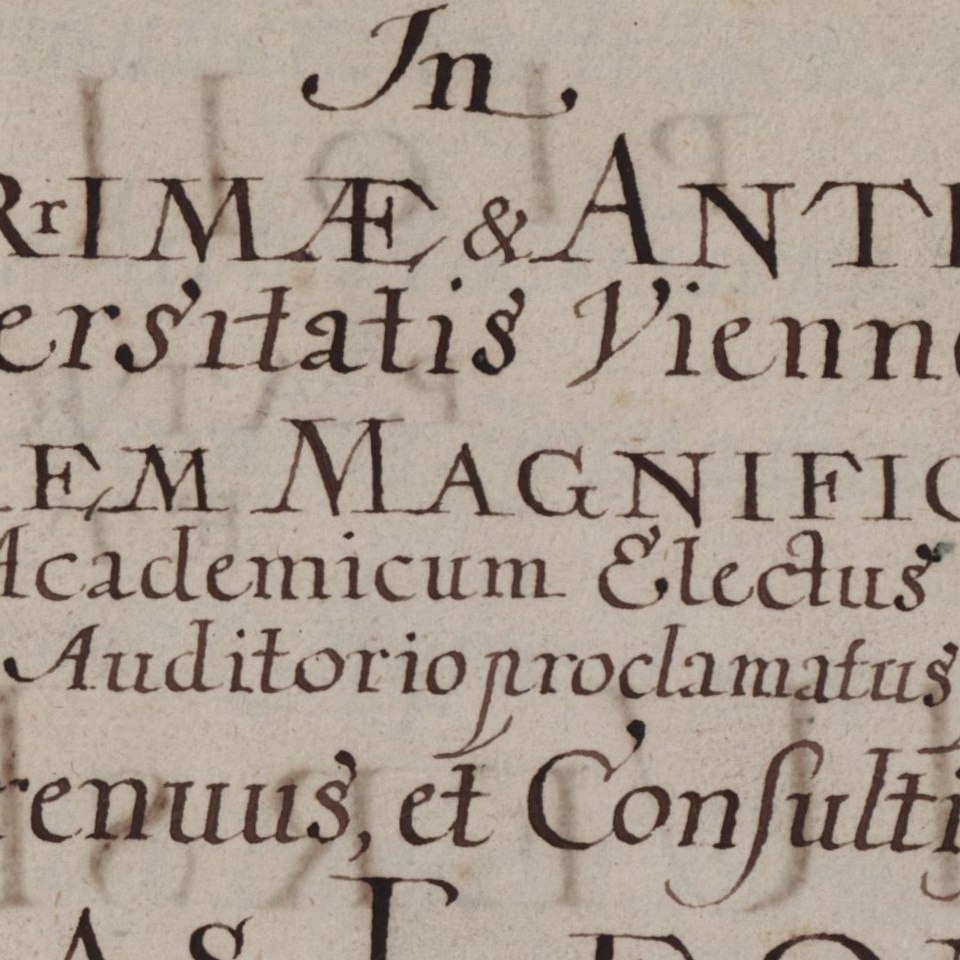 In
RrIMÆ & ANTI
ersitatis Vienne
EM MAGNIFIC
Academicum Electus
Auditorio proclamatus
renuus, et Consulti
AS